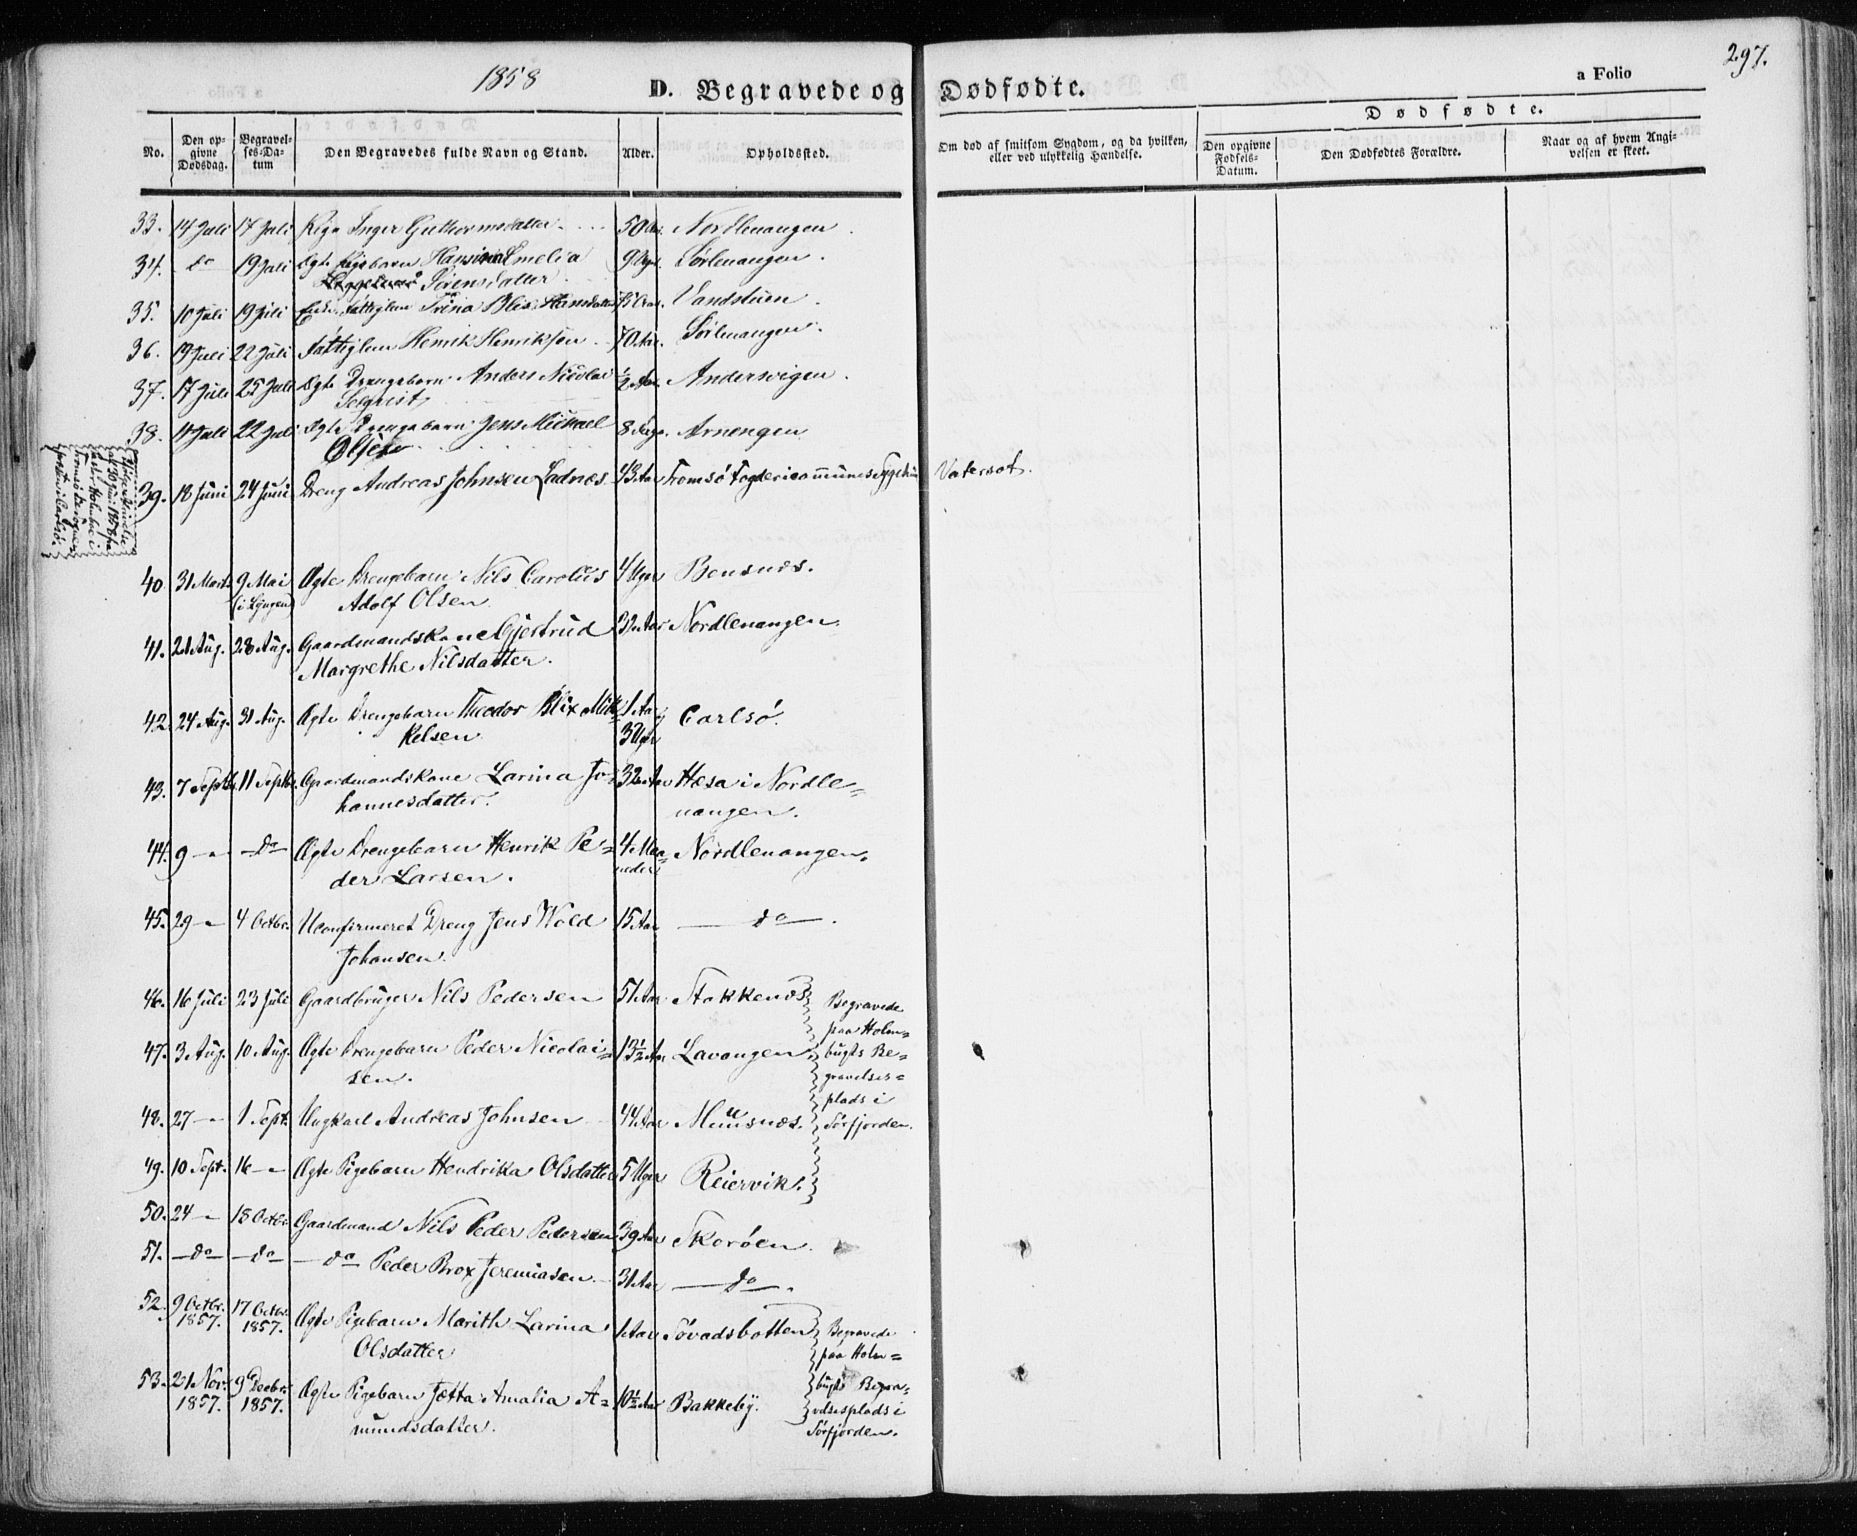 1858
D. Begravede og Dødfødte.
a Folio
297.
No.
Den opgivne Dødsdag.
Begravelses-Datum
Den Begravedes fulde Navn og Stand.
Alder.
Opholdssted.
Om død af smitsom Sygdom, og da hvilken, eller ved ulykkelig Hændelse.
Dødfødte.
Den opgivne Fødsels-Datum.
Den Dødfødtes Forældre.
Naar og af hvem Angivelsen er skeet.
33. 14 Juli 17 Juli Pige Inger Guthormsdatter 50 Aar. Nordlenangen.
34. do 19 Juli Ægte Pigebarn Hansina Emelia 9 Uger Sørlenangen.
Sørensdatter
35. 10 Juli 19 Juli Fattiglem Trina Hansdatter Vandstuen.
36. 19 Juli 22 Juli Fattiglem Henrik Henriksen 70 Aar. Sørlenangen.
37. 17 Juli 25 Juli Ægte Drengebarn Anders Nicolai 1/2 Aar. Andersvigen.
38. 11 Juli 22 Juli Ægte Drengebarn Jens Mickael 8 Dage. Arnengen
39. 18 Juni 24 Juni Dreng Andreas Johnsen Ladnæs 43 Aar Tromsö Fogdericommunes Sygehuus Vatersot.
40. 31 Marts 9 Mai Ægte Drengebarn Nils Carolus 4 Uger Bensnæs.
(i Lyngen) Adolf Olsen
41. 21 Aug. 28 Aug. Gaardmandskone Gjertrud 32 Aar Nordlenangen.
Margrethe Nilsdatter.
42. 24 Aug. 31 Aug. Ægte Drengebarn Theodor Blix Mik- 1 Aar og Carlsö.
kelsen 3 Uger
43. 7 Septbr. 11 Septbr. Gaardmandskone Larina Jo- 32 Aar Hæsa i Nordle=
hannesdatter. nangen.
44. 9 — " — do — Ægte Drengebarn Henrik Pe= 4 Maa- Nordlenangen.
der Larsen. neder
45. 29 — " 4 Octbr. Uconfirmeret Dreng Jens Wold 15 Aar — do —.
Johansen.
46. 16 Juli 23 Juli Gaardbruger Nils Pedersen 51 Aar Stakkenæs
Begravede
paa Holm=
47. 3 Aug. 10 Aug. Ægte Drengebarn Peder Nicolai= 13 1/2 Aar Lavangen
bugts Be=
sen.
gravelses=
plads i
48. 27 — " 1 Sept. Ungkarl Andreas Johnsen 44 Aar Muusnæs.
Sörfjorden.
49. 10 Sept. 16 — " Ægte Pigebarn Hendrika Olsdatter 5 Uger Reiervik.
50. 24 — " 18 Octbr. Gaardmand Nils Peder Pedersen 39 Aar Skoröen
51. — do — — do — — do — Peder Brox Jeremiasen. 31 Aar — do —.
52. 9 Octbr. 1857. 17 Octbr. 1857. Ægte Pigebarn Marith Larina 1 Aar Sövadsbotten
Olsdatter
Begravede
paa Holm=
53. 21 Nov. 1857. 9 Decbr. 1857. Ægte Pigebarn Jetta Amalia A= 10 1/2 Aar Bakkeby.
mundsdatter.
bugts Begra=
velsesplads i
Sörfjorden.